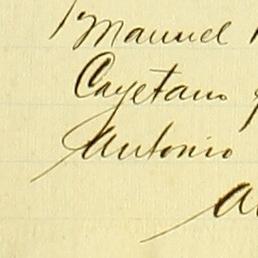 Manuel
Cayetano
Antonio